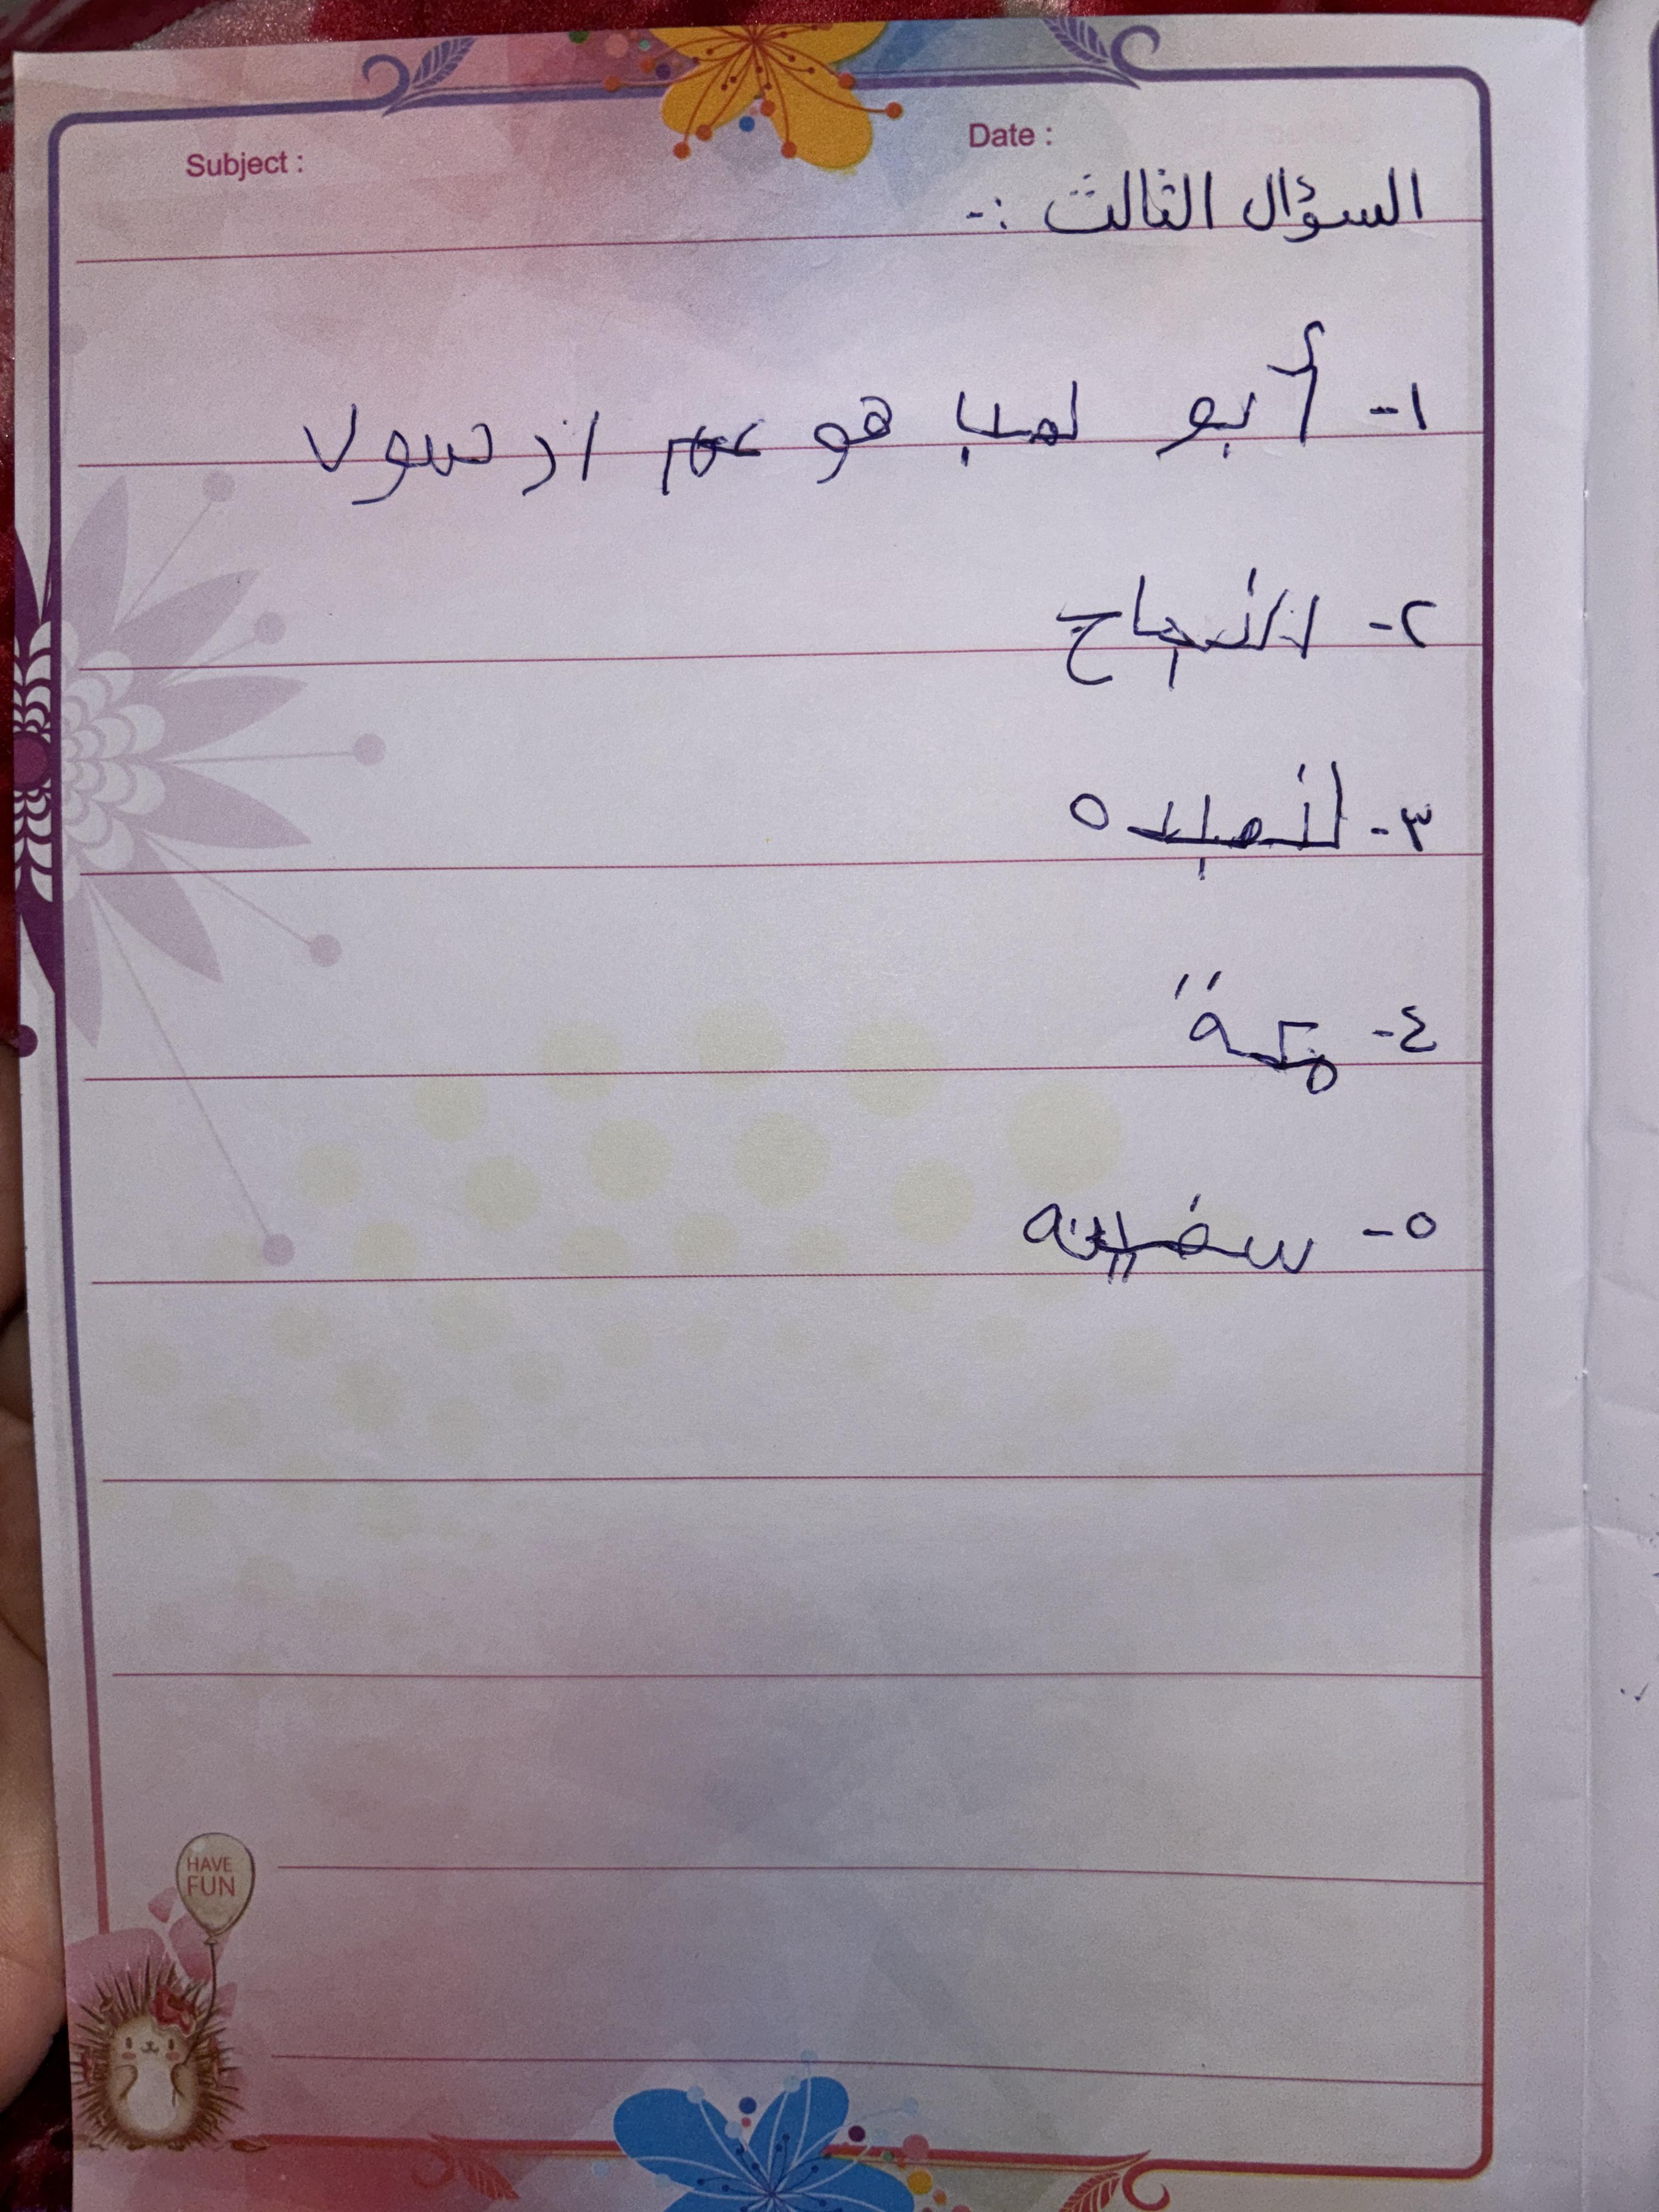 Subject :
Date :
السؤال الثالث :-
١- أبو لهب هو عم ارسول
٢- النجاح
٣- لنهايه
٤- مكة
٥- سفينه
HAVE
FUN